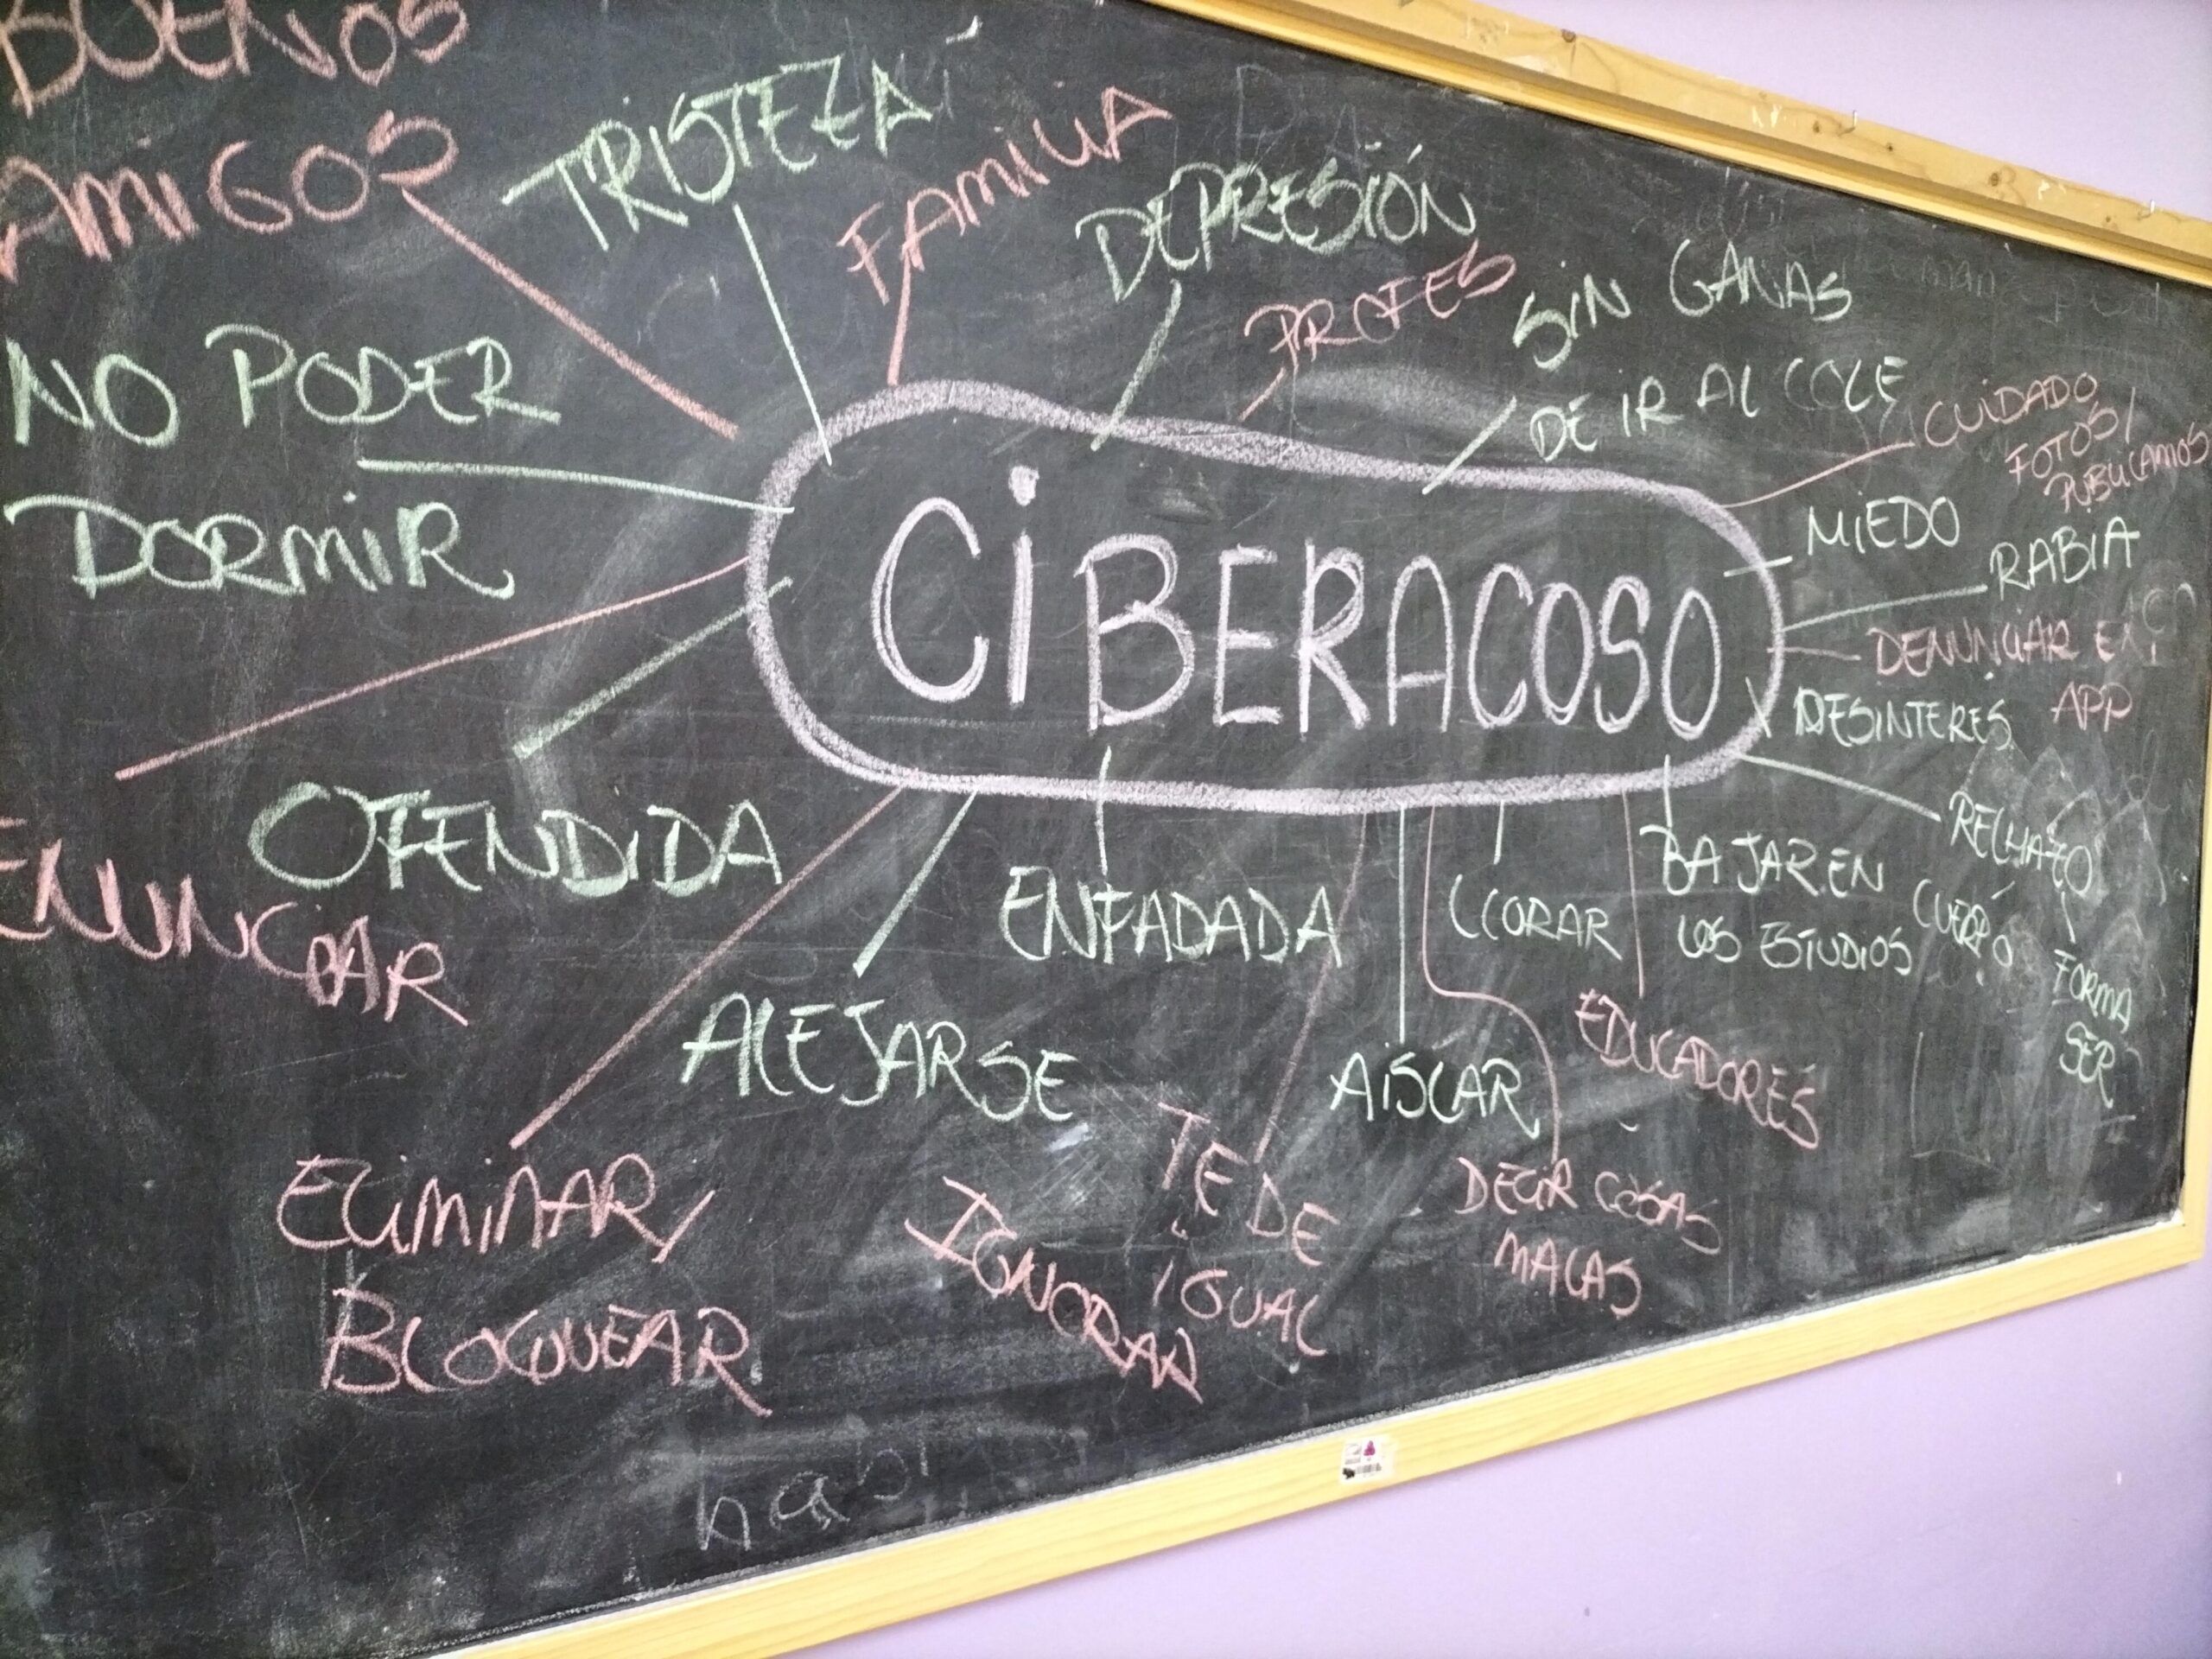 BUENOS
AMIGOS
TRISTEZA
FAMILIA
DEPRESIÓN
PROFES
SIN GANAS
DE IR AL COLE
CUIDADO
FOTOS/
PUBLICAMOS
NO PODER
DORMIR
CIBERACOSO
MIEDO
RABIA
DENUNCIAR EN
APP
DESINTERES
RECHAZO
CUERPO
FORMA
SER
OFENDIDA
ENUNCIAR
ENFADADA
LLORAR
BAJAR EN
LOS ESTUDIOS
ALEJARSE
AISLAR
EDUCADORES
ELIMINAR/
BLOQUEAR
IGNORAR
TE DE
IGUAL
DECIR COSAS
MALAS